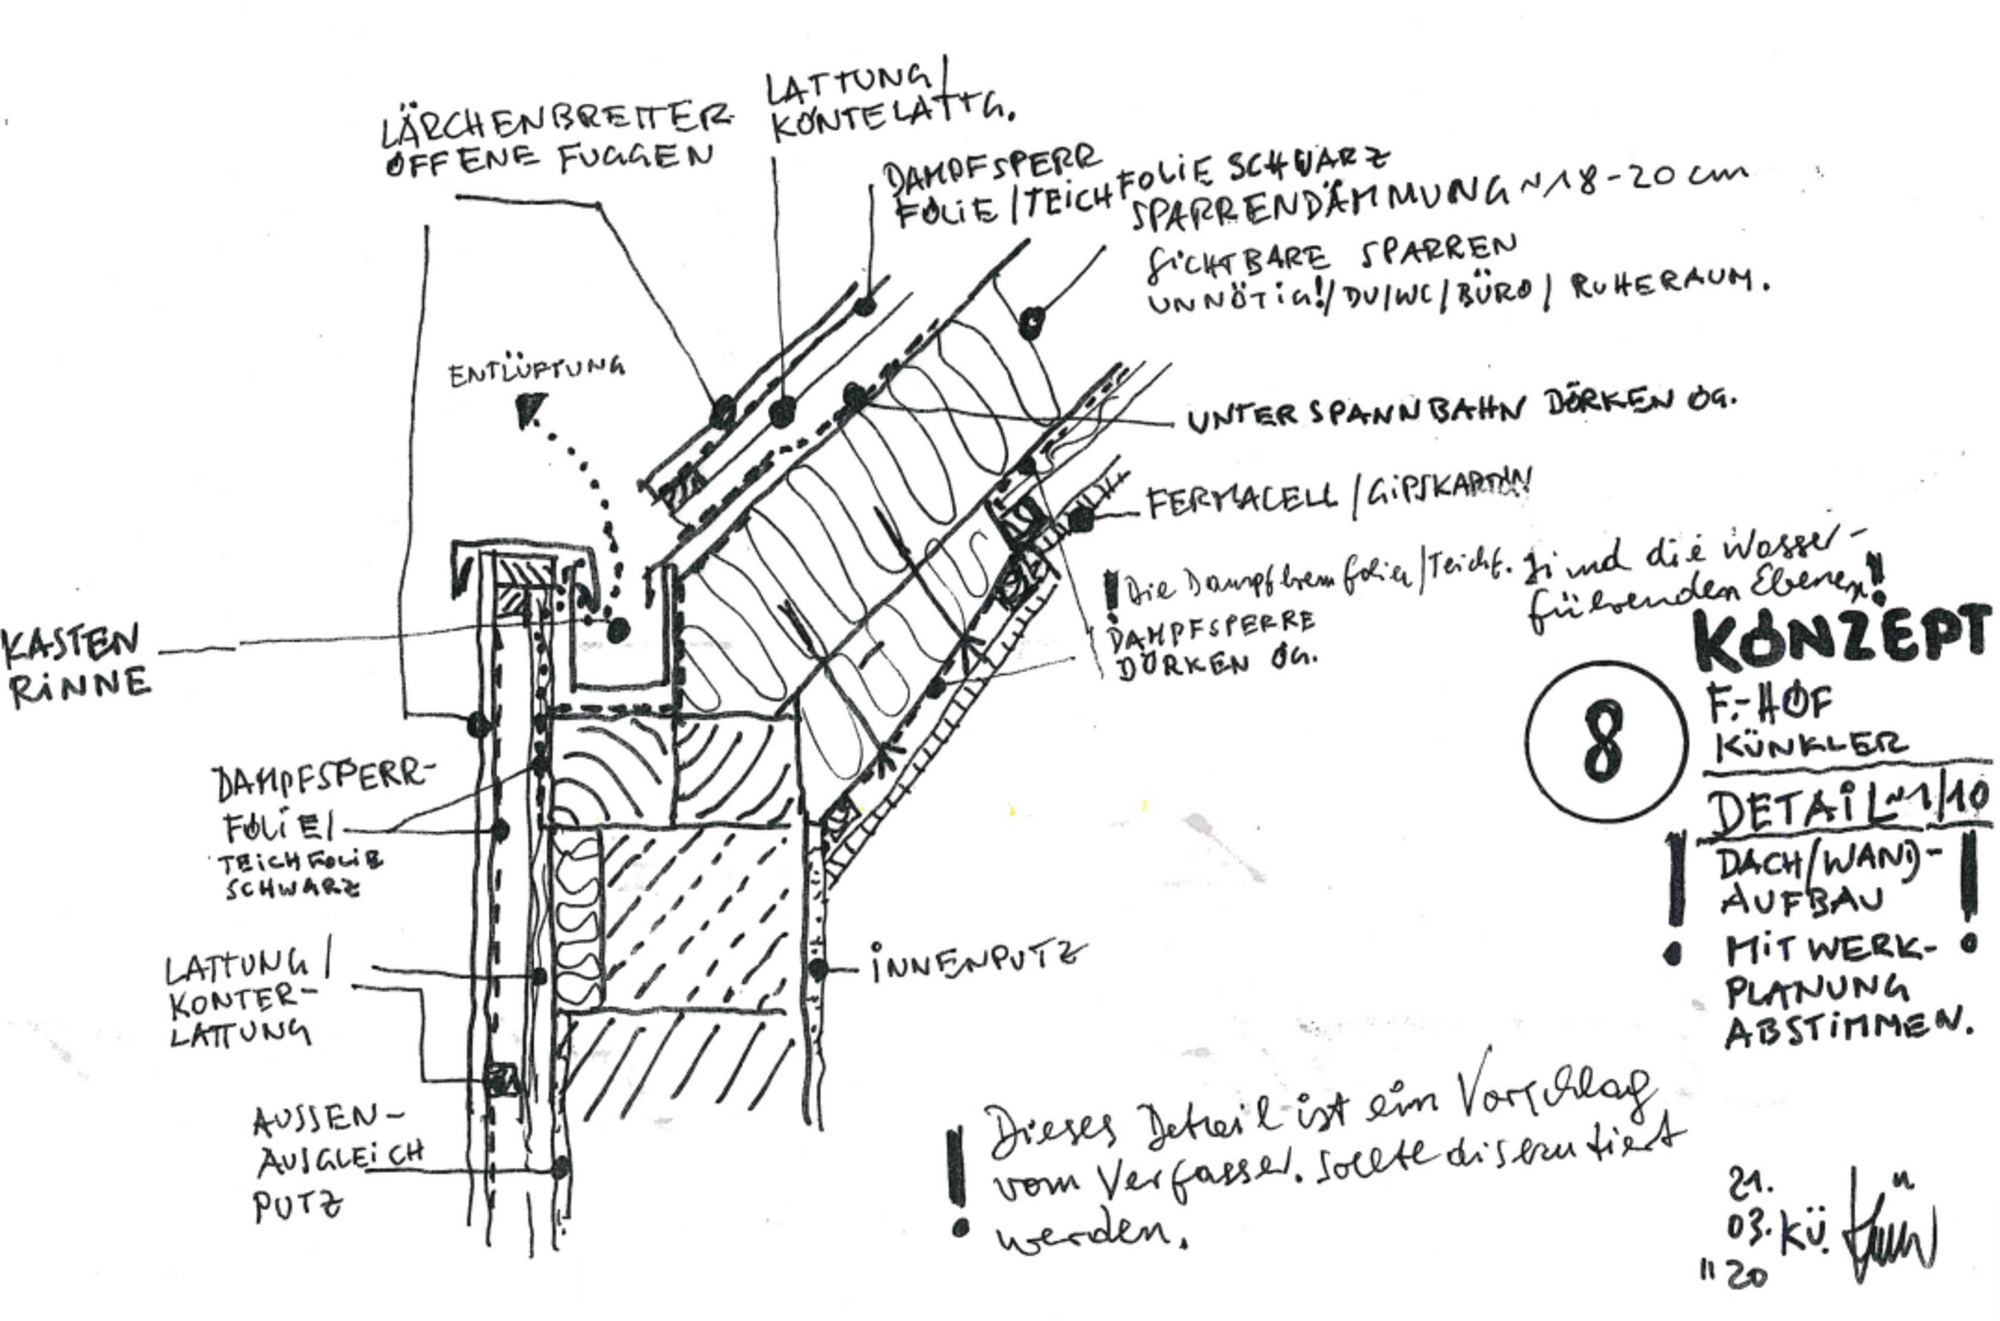 LÄRCHENBRETTER
OFFENE FUGGEN
LATTUNG/
KONTELATTG.
DAMPFSPERR
FOLIE/TEICHFOLIE SCHWARZ
SPARRENDÄMMUNG ~18-20cm
SICHTBARE SPARREN
UNNÖTIG!/DU/WC/BÜRO/RUHERAUM.
ENTLÜFTUNG
UNTERSPANNBAHN DÖRKEN OG.
FERMACELL/GIPSKARTON
! Die Dampfbremsfolien/Teichf. sind die Wasser-
führenden Ebenen!
DAMPFSPERRE
DÖRKEN OG.
KASTEN
RINNE
DAMPFSPERR-
FOLIE/
TEICHFOLIE
SCHWARZ
LATTUNG/
KONTER-
LATTUNG
AUSSEN-
AUSGLEICH
PUTZ
INNENPUTZ
8
KONZEPT
F.-HOF
KÜNKLER
DETAIL ~1/10
! DACH/WAND- !
AUFBAU
MIT WERK-
PLANUNG
ABSTIMMEN.
! Dieses Detail ist ein Vorschlag
vom Verfasser. sollte diskutiert
werden.
21.
03. KÜ.
"20